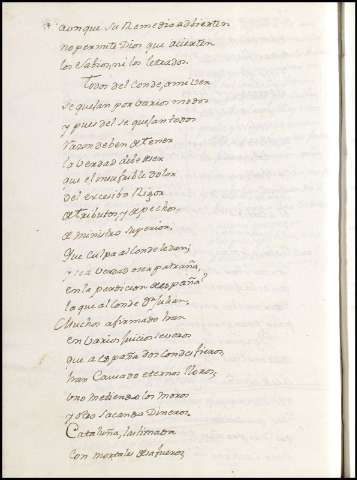 aunque su Remedio advierten
no permite Dios que acierten
los Sabios, ni los letrados.
Todos del Conde, a mi ver
se quejan por varios modos
y pues del se quejan todos
razon deben de tener
la verdad debe ser
que el insufrible dolor
del excesibo Rigor
de tributos, y de pechos,
de ministro superior,
que culpa al Conde le dan;
y sea verdad o sea patraña,
en la perdicion de españa
lo que al Conde Dn Julian.
Muchos afirmado han
en varios juicios severos
que a españa dos Condes fieros,
han Causado eternos lloros;
uno metiendo los moros
y otro sacando Dineros.
Cataluña, lastimada
con mortales desafueros,